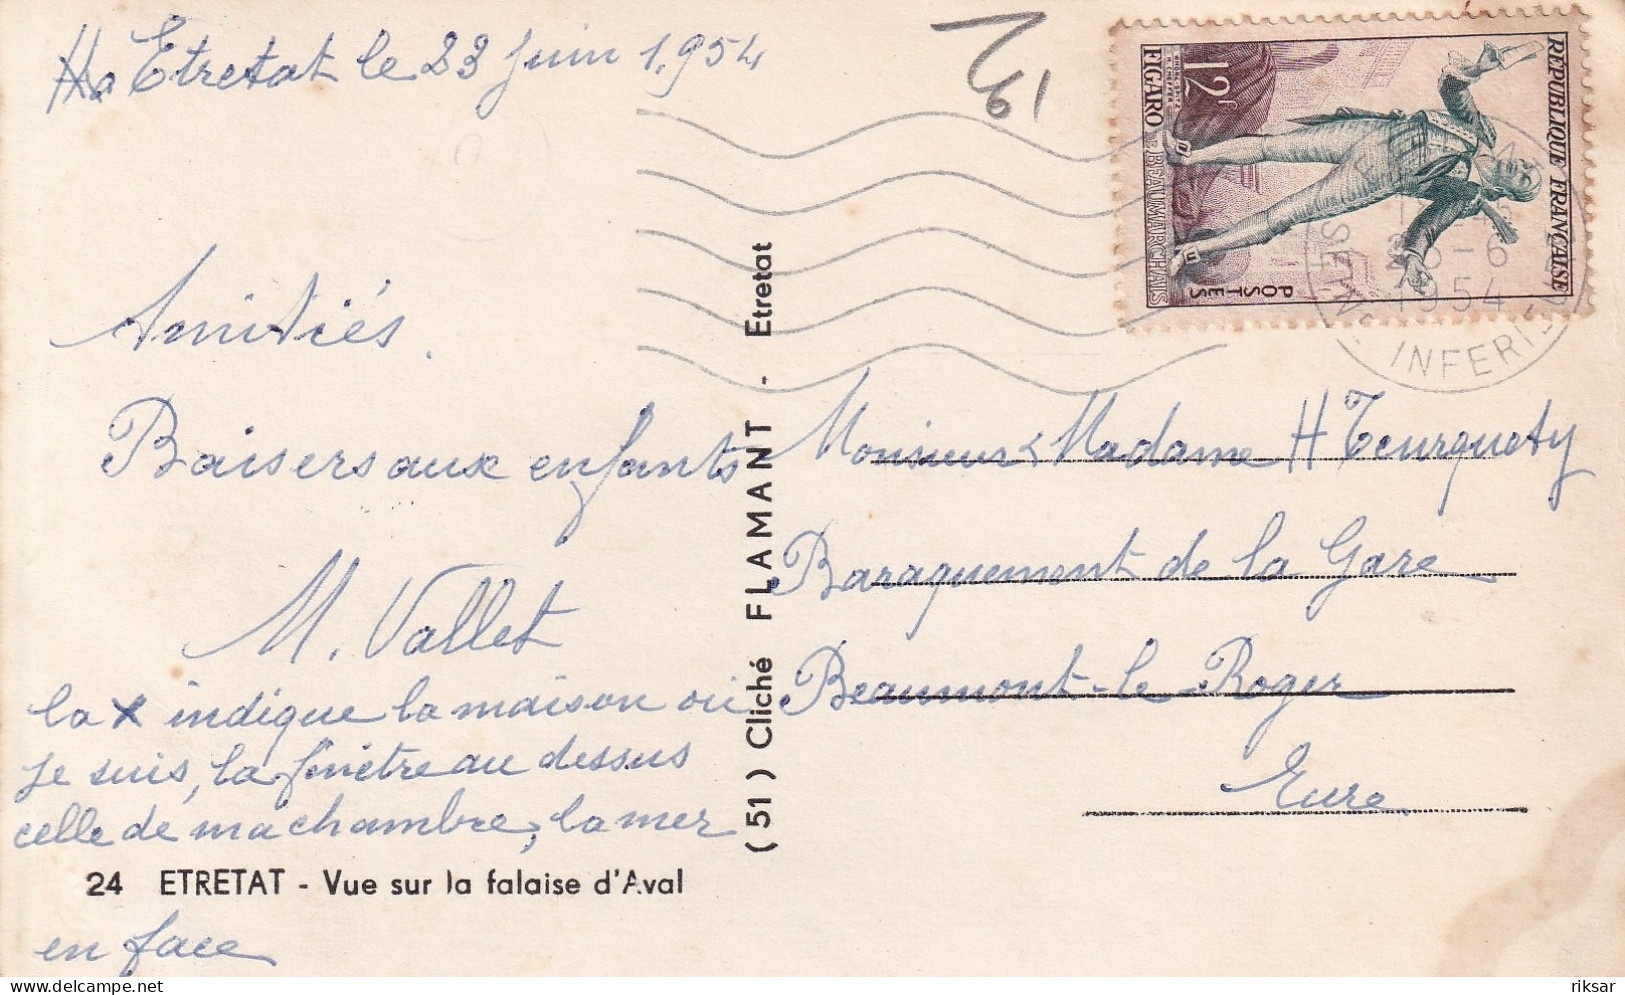 Etretat le 23 juin 1.954
Amitiés.
Baisers aux enfants
M. Vallet
la x indique la maison où
je suis, la fenêtre au dessus
celle de ma chambre, la mer
24 ETRETAT - Vue sur la falaise d'Aval
en face
(51) Cliché FLAMANT - Etretat
1961
REPUBLIQUE FRANÇAISE
POSTES
12F
FIGARO DE BEAUMARCHAIS
SEINE INFERIE
-6
1954
Monsieur & Madame H Teurquety
Baraquement de la Gare
Beaumont-le-Roger
Eure
riksar